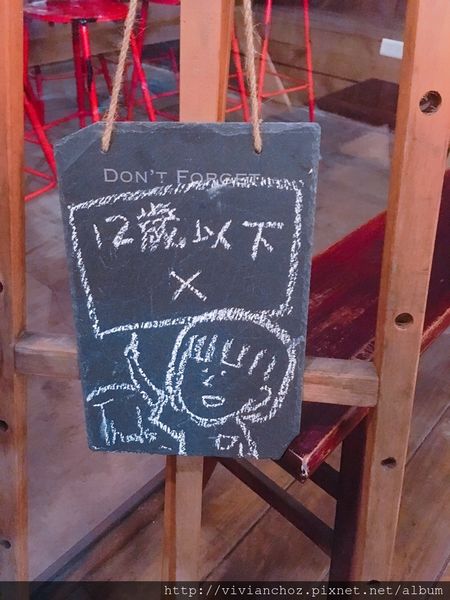 DON'T FORGET
12歲以下
×
Thanks
http://vivianchoz.pixnet.net/album